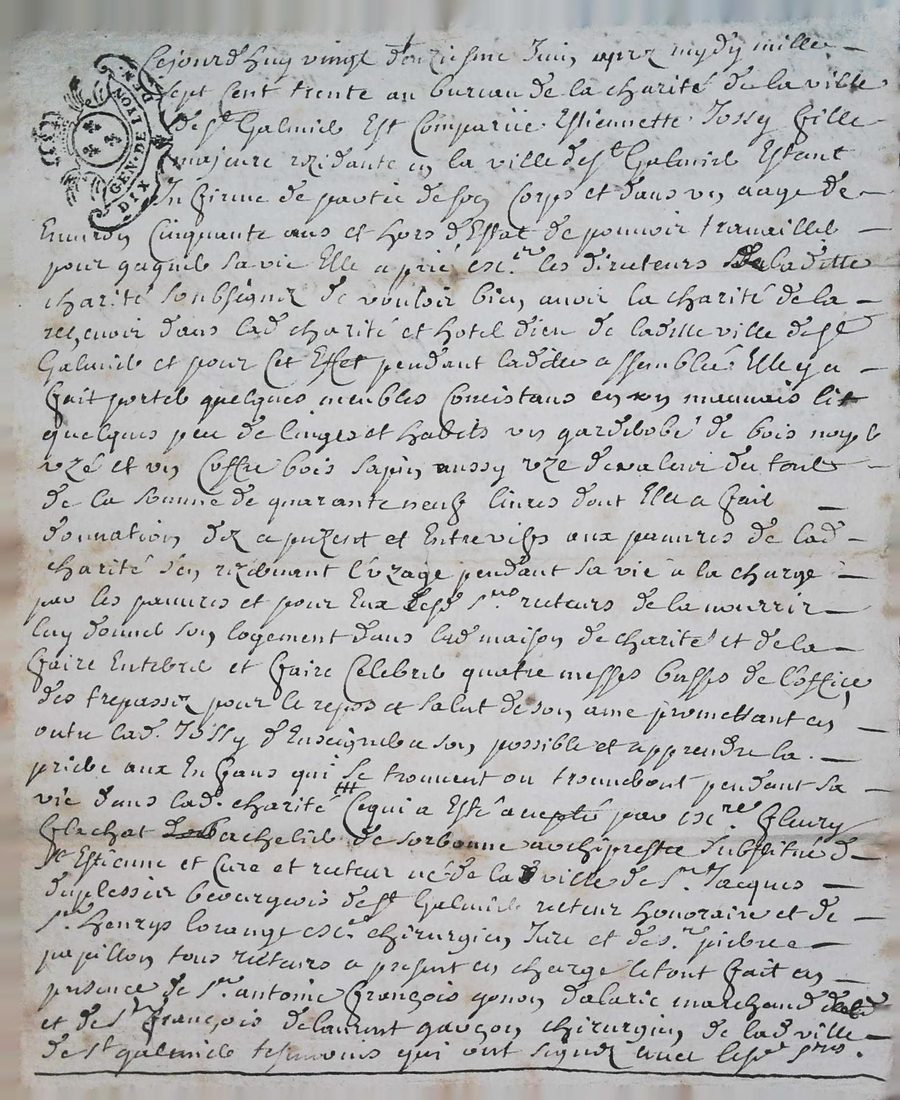 GEN. DE LION
DIX DEN
Cejourdhuy vingt deuziesme Juin aprez mydy mille
sept cent trente au bureau de la charité de la ville
de st Galmier Est Comparüe Estiennette Jossy fille
majeure rezidante en la ville de st Galmier Estant
Infirme de partie de son Corps et dans un aage de
Environ Cinquante ans et hors d'Estat de pouvoir travailler
pour gagner sa vie Elle a prié les directeurs de ladille
charité soubsignez de vouloir bien avoir la charité de la
recevoir dans lad charité et hotel dieu de ladille ville de st
Galmier et pour Cet Effet pendant ladille assemblée Elle y a
fait porter quelques meubles Concistans en un mauvais lit
quelques peu de linges et habits un garderobe de bois noyer
uzé et un Coffre bois sapin aussy uze de valeur du tout
de la somme de quarante neuf livres dont Elle a fait
donnation dez a puzent et Entrevifs aux pauvres de lad
charité s'en rezervant l'uzage pendant sa vie a la charge
par les pauvres et pour Eux lesd srs recteurs de la nourrir
luy donner son logement dans lad maison de charité et de la
faire Enterrer et faire Celebrer quatre messes basses de l'office
des trepassez pour le repos et salut de son ame promettant en
outre lad. Jossy d'Enseigner a son possible et apprendre la
priere aux Enfans qui se trouvent ou trouveront pendant sa
vie dans lad. charité Ce qui a Esté accepté par Fleury
flachat bachelier de sorbonne archiprestre substitué d
st Estienne et Cure et recteur né de lad ville de sr Jacques
duplessier bourgeois de st Galmier recteur honoraire et de
sr. Henrys lorange chirurgien Jure et de sr pierre
papillon tous recteurs a present en charge le tout fait en
presence de sr antoine françois gonon dalaric marchand
et de sr françois delaurent garçon chirurgien de lad ville
de st galmier tesmoins qui ont signez avec lesd srs.